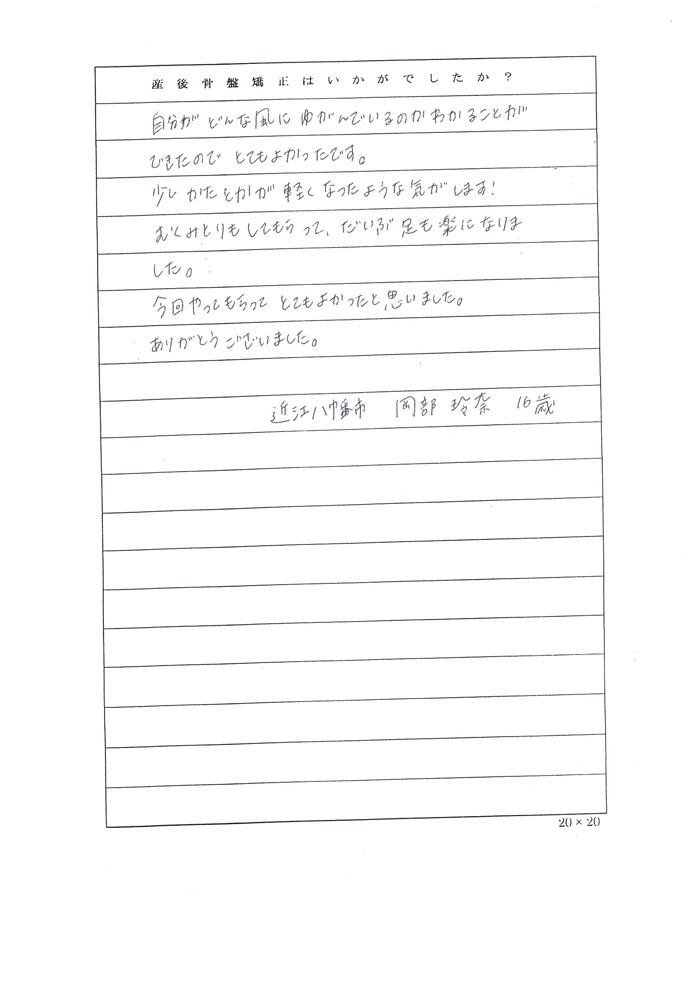 産後骨盤矯正はいかがでしたか？
自分が どんな風に ゆがんでいるのかわかることが
できたので とてもよかったです。
少し かたとかが 軽く なったような 気がします!
むくみとりも してもらって、だいぶ 足も 楽に なりま
した。
今回 やってもらって とてもよかったと 思いました。
ありがとう ございました。
近江八幡市 岡部 玲奈 16歳
20×20